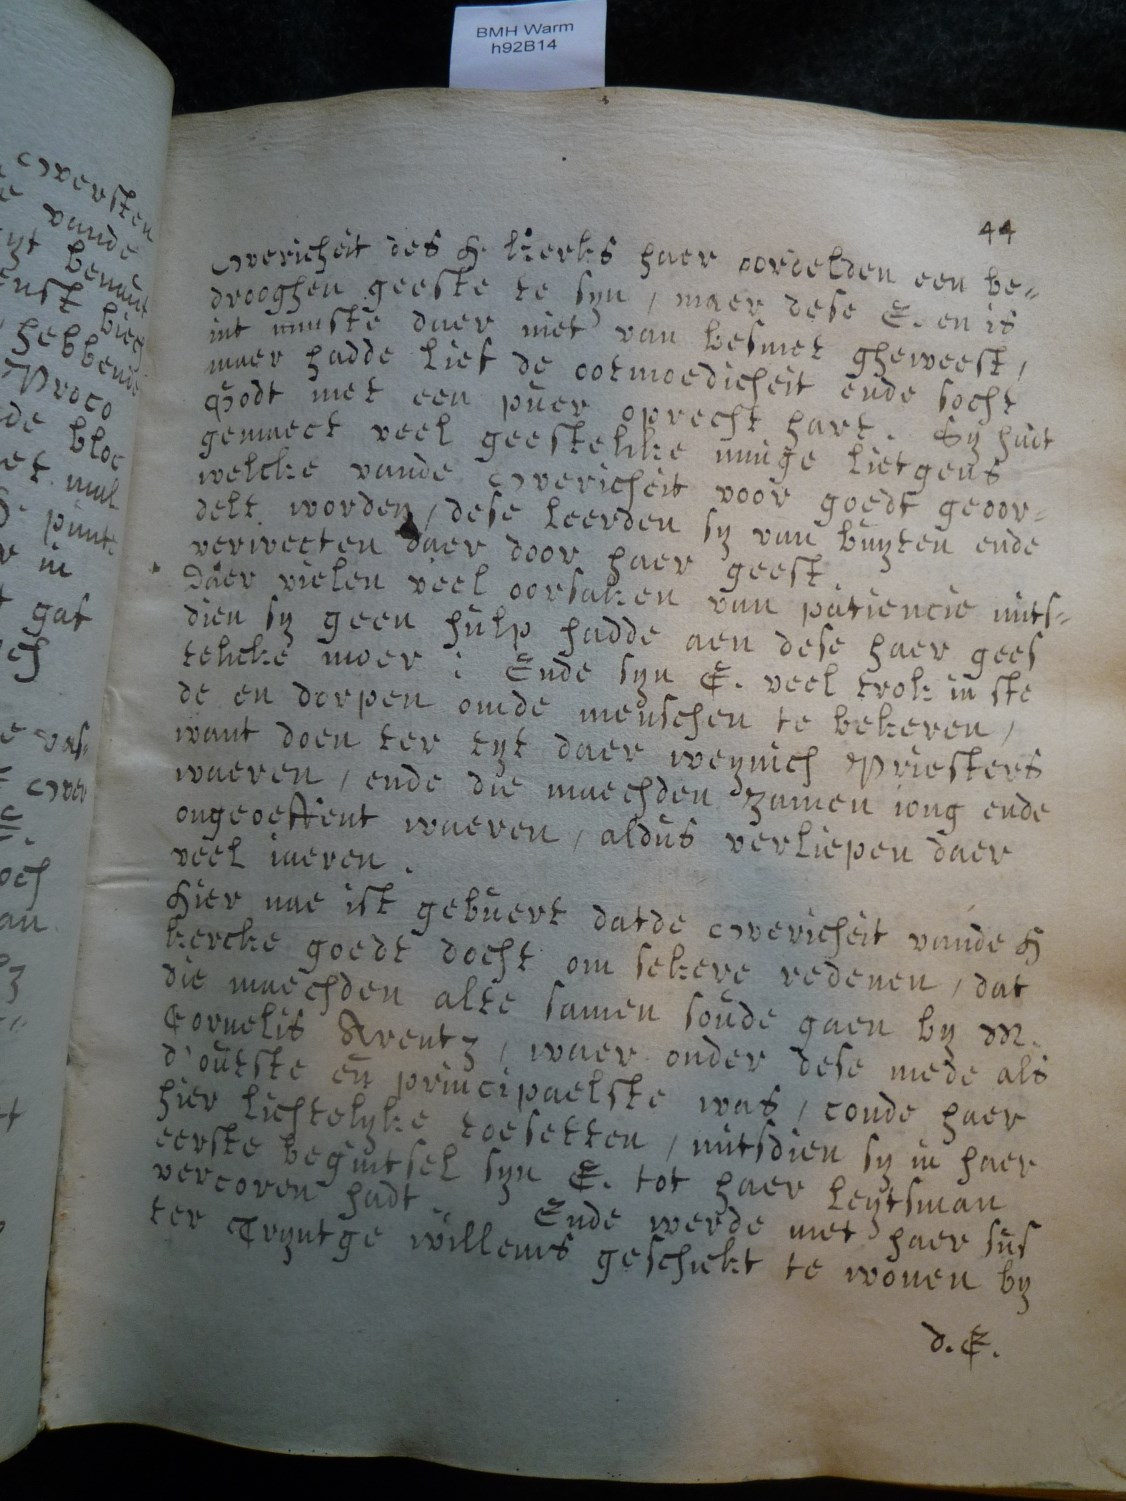 BMH Warm
h92B14
44
Overicheit des H. kerks haer oordelden een be=
drooghen geeste te syn, maer dese E. en is
int minste daer niet van besmet gheweest,
maer hadde lief de ootmoedicheit ende socht
Godt met een puer oprecht hart. Sy hadt
gemaect veel geestelike innige lietgens
welcke vande Overicheit voor goedt geoor=
delt worden, dese leerden sy van buyten ende
verwecten daer door haer geest.
Daer vielen veel oorsaken van patiencie mits=
dien sy geen hulp hadde aen dese haer gees
telicke moer: Ende syn E. veel trok in ste
de en dorpen omde menschen te bekeren,
want doen ter tyt daer weynich Priesters
waeren, ende die maechden zamen iong ende
ongeoeffent waeren, aldus verliepen daer
veel iaeren.
Hier nae ist gebuert datde Overicheit vande H
kercke goedt docht om sekere redenen, dat
die maechden alte samen soude gaen by M.
Cornelis Arentz, waer onder dese mede als
d'outste en principaelste was, conde haer
hier lichtelyke toesetten, mitsdien sy in haer
eerste begintsel syn E. tot haer leytsman
vercoren hadt. Ende werde met haer sus
ter Tryntge willems geschickt te wonen by
d. E.